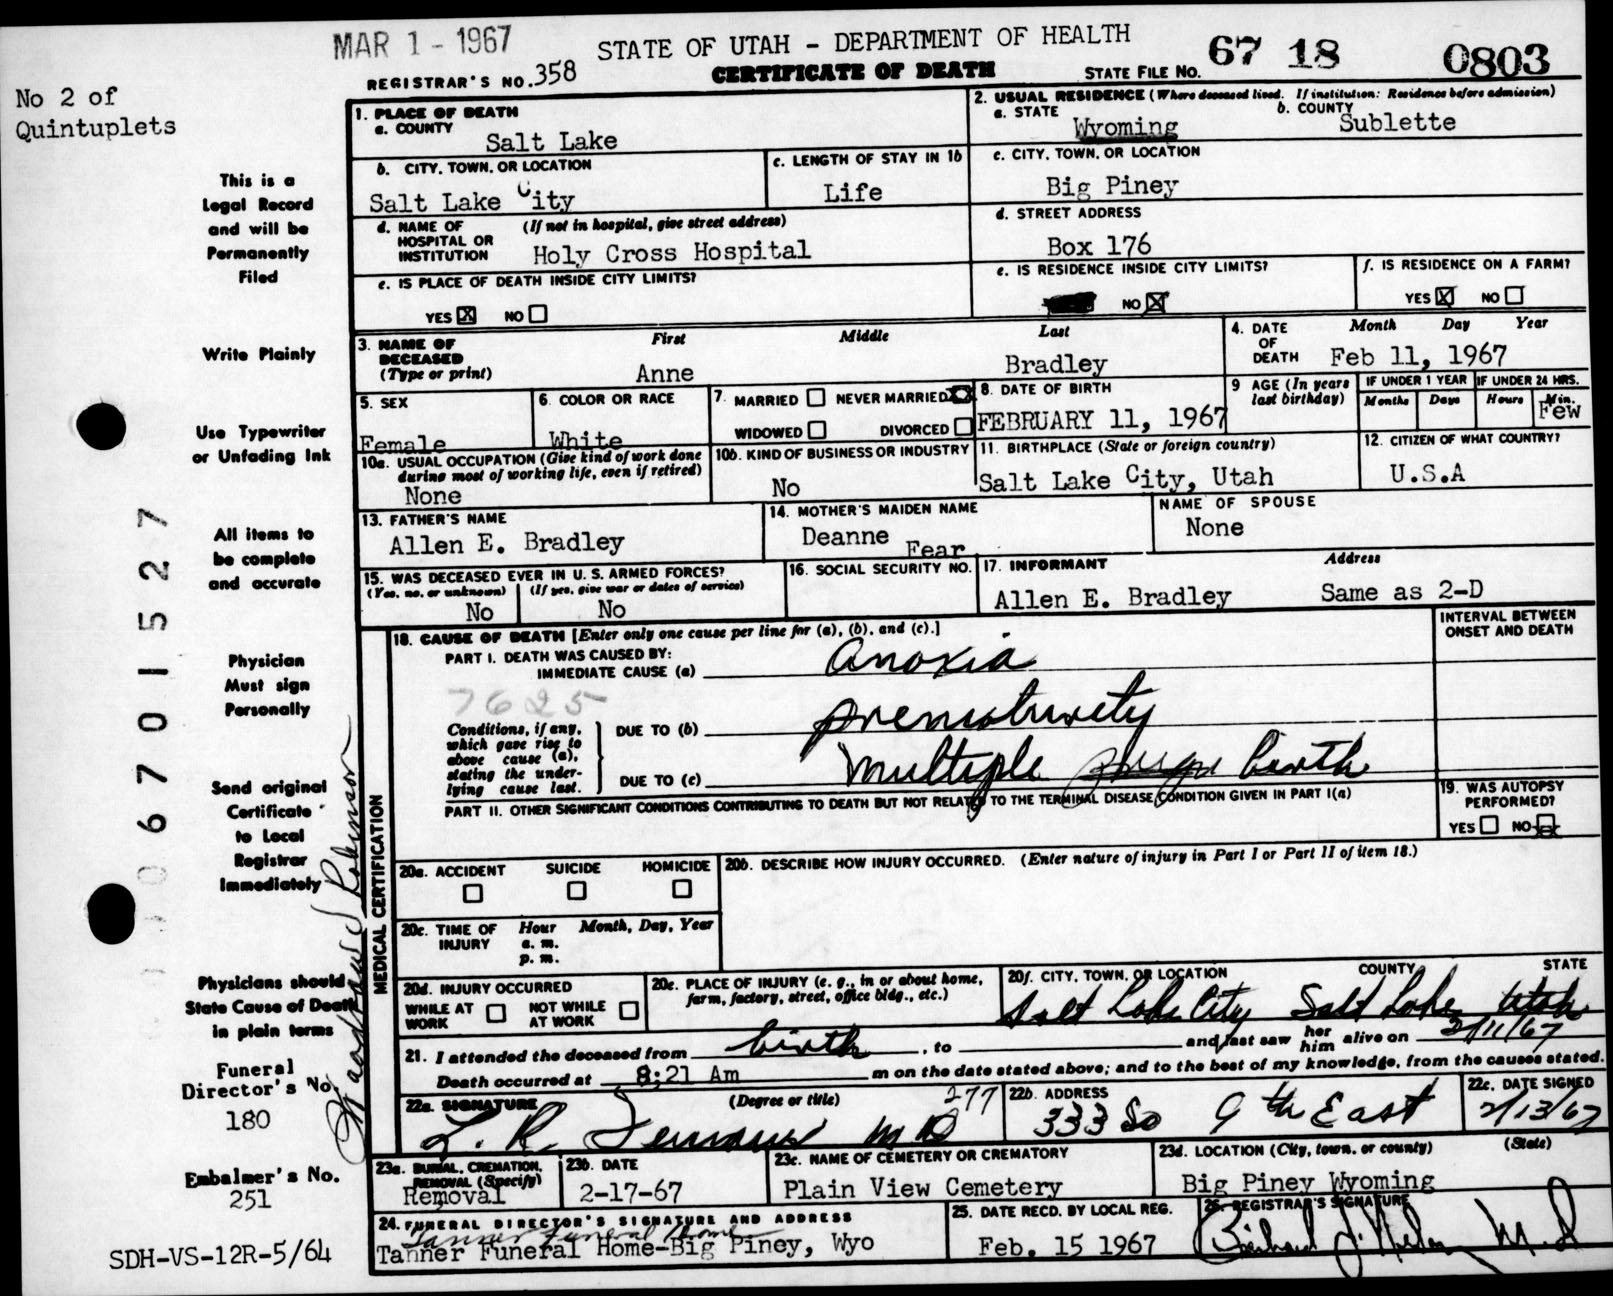 MAR 1 - 1967
STATE OF UTAH - DEPARTMENT OF HEALTH
67 18 0803
REGISTRAR'S NO. 358
CERTIFICATE OF DEATH
STATE FILE NO.
No 2 of
Quintuplets
This is a
Legal Record
and will be
Permanently
Filed
Write Plainly
Use Typewriter
or Unfading Ink
All items to
be complete
and accurate
Physician
Must sign
Personally
Send original
Certificate
to Local
Registrar
Immediately
Physicians should
State Cause of Death
in plain terms
Funeral
Director's No.
180
Embalmer's No.
251
SDH-VS-12R-5/64
0067015 27
1. PLACE OF DEATH
a. COUNTY
Salt Lake
2. USUAL RESIDENCE (Where deceased lived. If institution: Residence before admission)
a. STATE
Wyoming
b. COUNTY
Sublette
b. CITY, TOWN, OR LOCATION
Salt Lake City
c. LENGTH OF STAY IN 1b
Life
c. CITY, TOWN, OR LOCATION
Big Piney
d. NAME OF HOSPITAL OR INSTITUTION
(If not in hospital, give street address)
Holy Cross Hospital
d. STREET ADDRESS
Box 176
e. IS PLACE OF DEATH INSIDE CITY LIMITS?
YES X NO
e. IS RESIDENCE INSIDE CITY LIMITS?
NO X
f. IS RESIDENCE ON A FARM?
YES X NO
3. NAME OF DECEASED
(Type or print)
First Middle Last
Anne Bradley
4. DATE OF DEATH
Month Day Year
Feb 11, 1967
5. SEX
Female
6. COLOR OR RACE
White
7. MARRIED NEVER MARRIED X
WIDOWED DIVORCED
8. DATE OF BIRTH
FEBRUARY 11, 1967
9 AGE (In years last birthday)
IF UNDER 1 YEAR
Months Days
IF UNDER 24 HRS.
Hours Min.
Few
10a. USUAL OCCUPATION (Give kind of work done
during most of working life, even if retired)
None
10b. KIND OF BUSINESS OR INDUSTRY
No
11. BIRTHPLACE (State or foreign country)
Salt Lake City, Utah
12. CITIZEN OF WHAT COUNTRY?
U.S.A
13. FATHER'S NAME
Allen E. Bradley
14. MOTHER'S MAIDEN NAME
Deanne Fear
NAME OF SPOUSE
None
15. WAS DECEASED EVER IN U. S. ARMED FORCES?
(Yes, no, or unknown) (If yes, give war or dates of service)
No No
16. SOCIAL SECURITY NO.
17. INFORMANT Address
Allen E. Bradley Same as 2-D
MEDICAL CERTIFICATION
18. CAUSE OF DEATH [Enter only one cause per line for (a), (b), and (c).]
INTERVAL BETWEEN
ONSET AND DEATH
PART I. DEATH WAS CAUSED BY:
IMMEDIATE CAUSE (a) Anoxia
7625
Conditions, if any,
which gave rise to
above cause (a),
stating the under-
lying cause last.
DUE TO (b) prematurity
DUE TO (c) Multiple birth
PART II. OTHER SIGNIFICANT CONDITIONS CONTRIBUTING TO DEATH BUT NOT RELATED TO THE TERMINAL DISEASE CONDITION GIVEN IN PART I(a)
19. WAS AUTOPSY PERFORMED?
YES NO X
20a. ACCIDENT SUICIDE HOMICIDE
20b. DESCRIBE HOW INJURY OCCURRED. (Enter nature of injury in Part I or Part II of item 18.)
20c. TIME OF INJURY
Hour Month, Day, Year
a. m.
p. m.
20d. INJURY OCCURRED
WHILE AT WORK NOT WHILE AT WORK
20e. PLACE OF INJURY (e. g., in or about home,
farm, factory, street, office bldg., etc.)
20f. CITY, TOWN, OR LOCATION COUNTY STATE
Salt Lake City Salt Lake Utah
21. I attended the deceased from birth, to and last saw her him alive on 2/11/67
Death occurred at 8:21 Am m on the date stated above; and to the best of my knowledge, from the causes stated.
22a. SIGNATURE (Degree or title)
277
L. R. MD
22b. ADDRESS
333 So 9th East
22c. DATE SIGNED
2/13/67
23a. BURIAL, CREMATION,
REMOVAL (Specify)
Removal
23b. DATE
2-17-67
23c. NAME OF CEMETERY OR CREMATORY
Plain View Cemetery
23d. LOCATION (City, town, or county) (State)
Big Piney Wyoming
24. FUNERAL DIRECTOR'S SIGNATURE AND ADDRESS
Tanner Funeral Home
Tanner Funeral Home-Big Piney, Wyo
25. DATE RECD. BY LOCAL REG.
Feb. 15 1967
26. REGISTRAR'S SIGNATURE